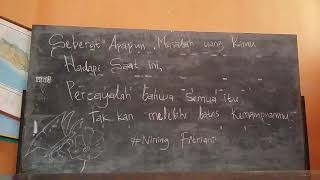 Seberat Apapun Masalah yang Kamu
Hadapi Saat ini,
Percayalah bahwa Semua itu
Tak kan melebihi batas Kemampuanmu
#Nining Fitriani